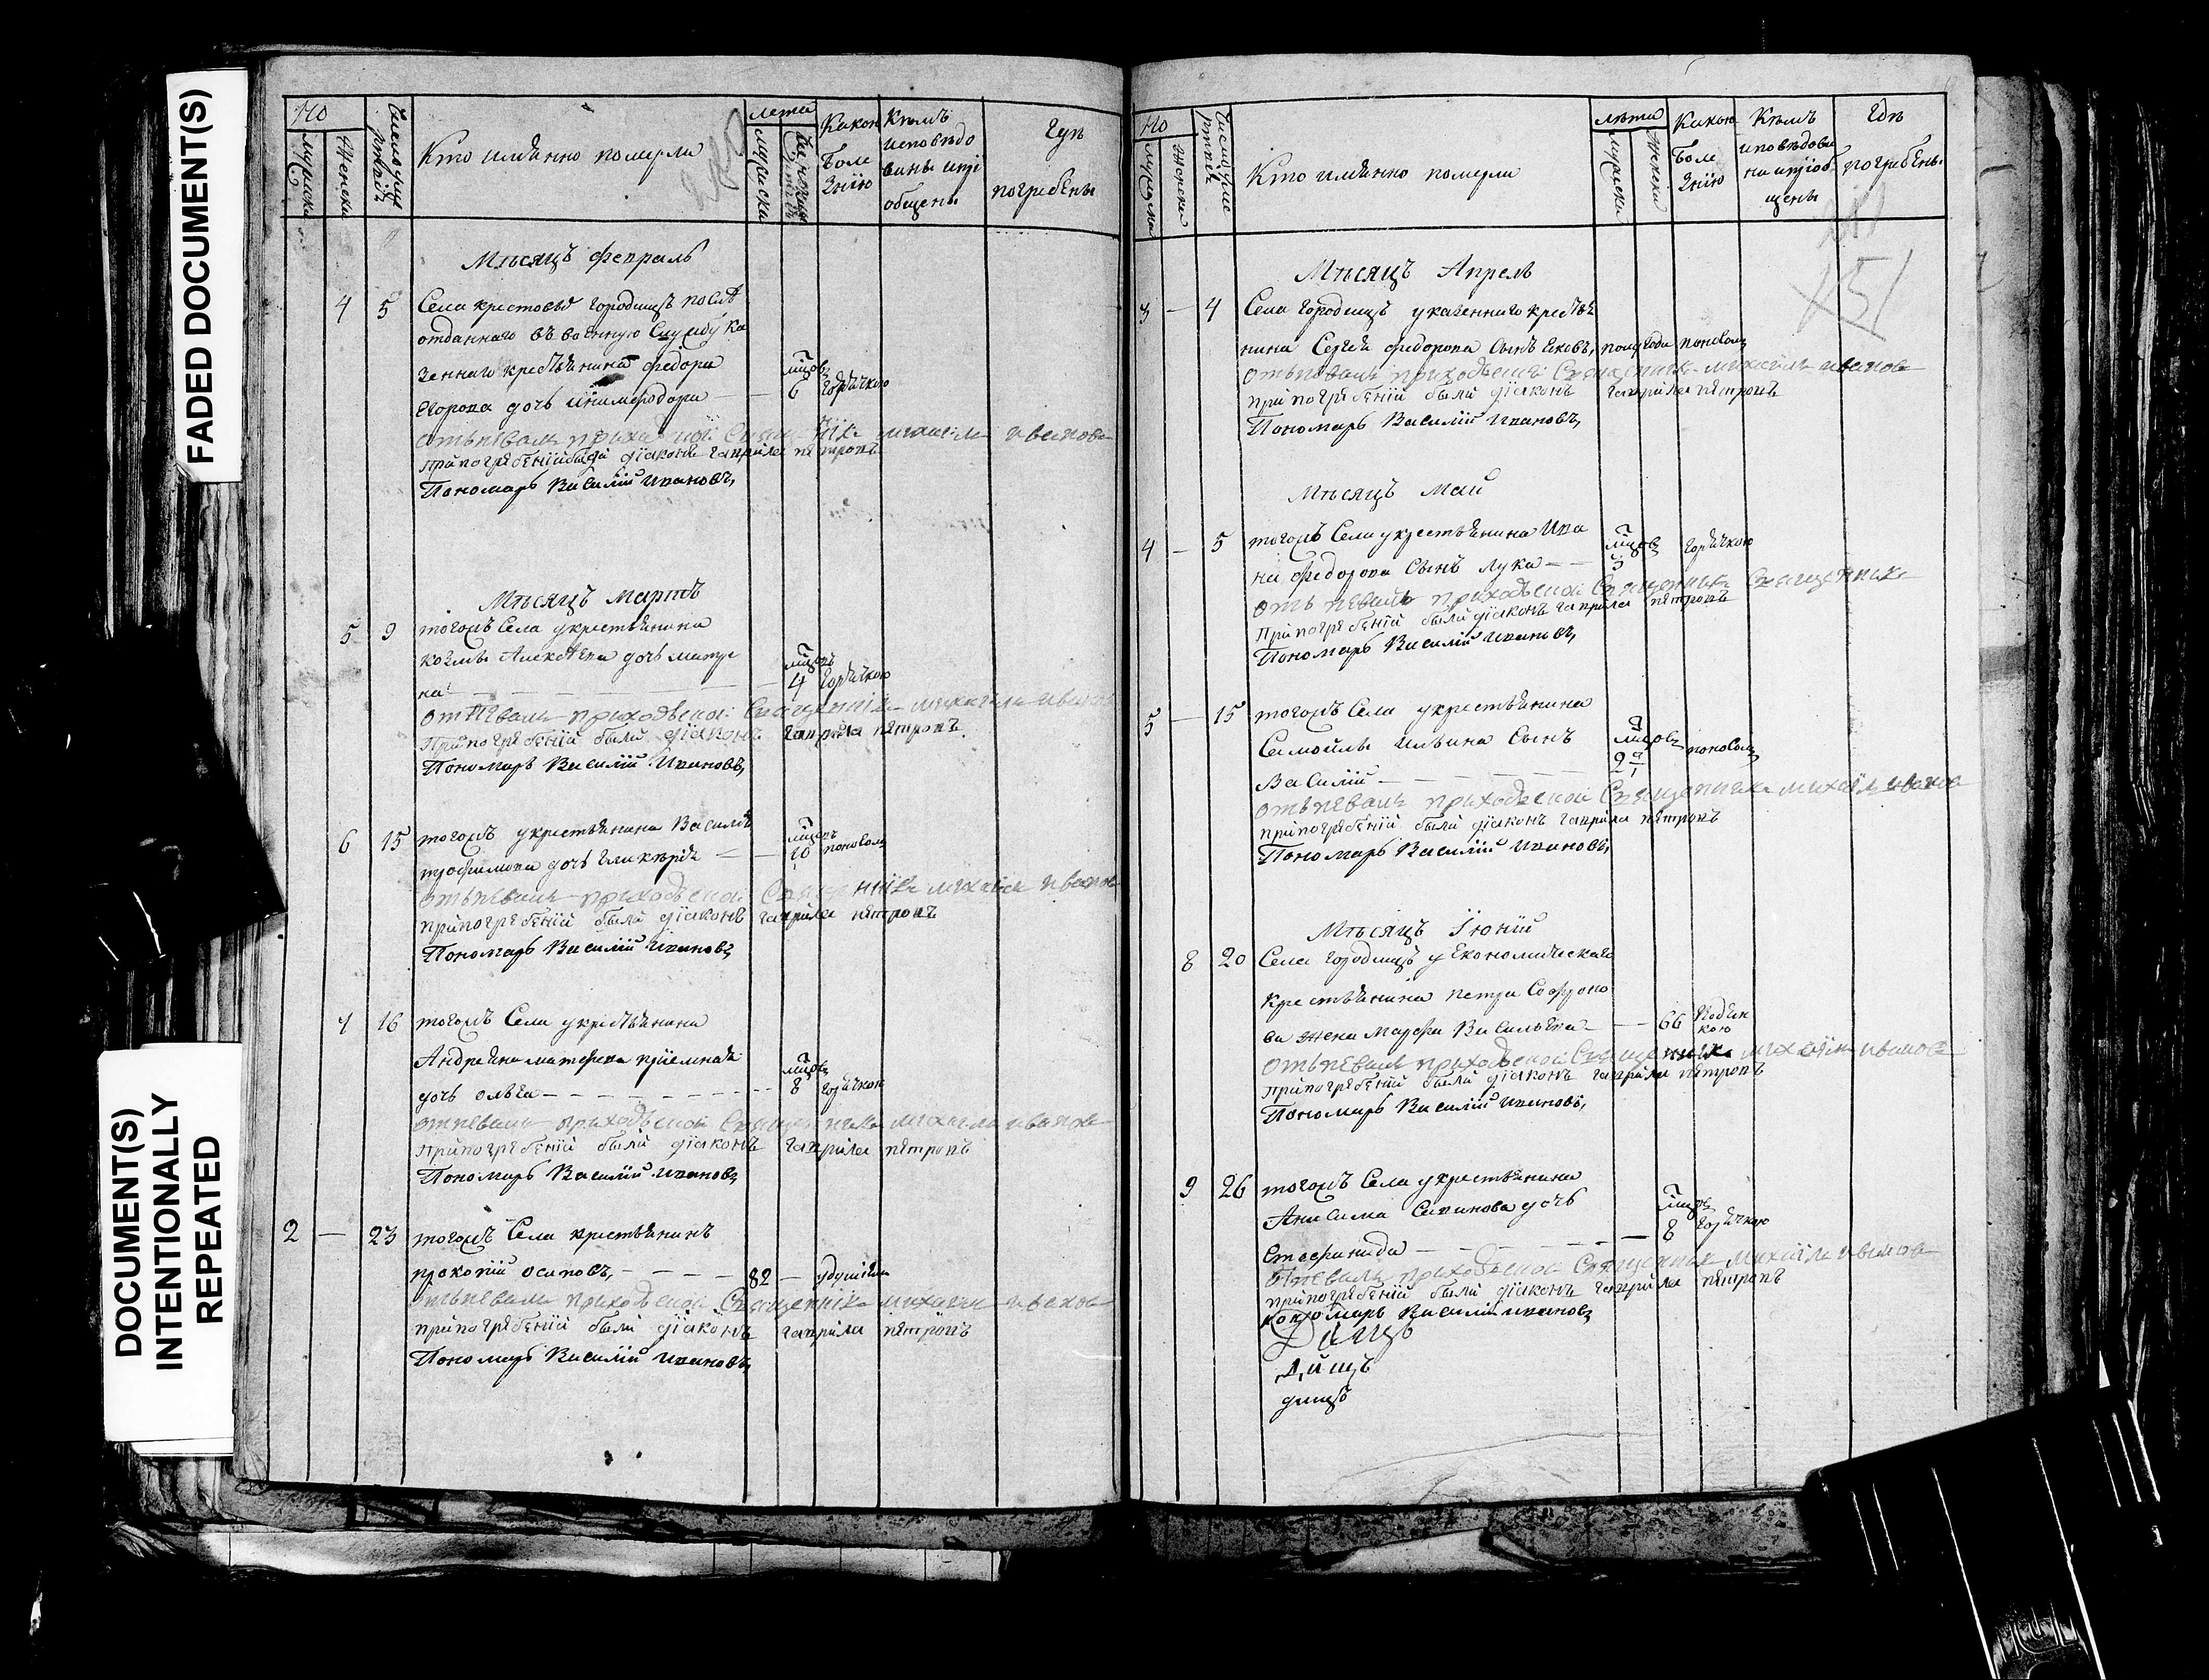 FADED DOCUMENT(S)
DOCUMENT(S)
INTENTIONALLY
REPEATED
No
мужеска
женска
Кто имянно померли
лета
мужеска
Какою
боле
знїю
Кѣмъ
исповѣдо
ваны и прї
общены
Гдѣ
погребены
Мѣсяцъ февраль
4 5 Села крестовыхъ городищъ
отданнаго въ военную службу ка
зеннаго крестьянина федора
Егорова дочь
6 горячкою
отпевалъ приходской Священникъ михаилъ иванов
при погребенїи были дїаконъ гаврила петровъ
Пономарь Василїй Ивановъ,
Мѣсяцъ мартъ
5 9 тогожъ Села у крестьянина
козмы дочь матре
на
4 горячкою
отпевалъ приходской Священникъ михаила иванов
При погребенїи были дїаконъ гаврила петровъ
Пономарь Василїй Ивановъ,
6 15 тогожъ у крестьянина
трофимова дочь гликерїя
10 поносомъ
отпевалъ приходской Священникъ михаила иванов
при погребенїи были дїаконъ гаврила петровъ
Пономарь Василїй Ивановъ
7 16 тогожъ Села у крестьянина
Андреяна матфеева прїемная
дочь
8 горячкою
отпевалъ приходской Священникъ михаила иванов
При погребенїи были дїаконъ гаврила петровъ
Пономарь Василїй Ивановъ
2 — 23 тогожъ Села крестьянинъ
прокопїй осиповъ, 82 —
отпевалъ приходской Священникъ михаилъ иванов
при погребенїи были дїаконъ гаврила петровъ
Пономарь Василїй Ивановъ,
No
мужеска
женска
Кто имянно померли
лѣта
мужеска
женска
Какою
боле
знїю
Кѣмъ
исповѣдова
ны и прїоб
щены
Гдѣ
погребены
151
Мѣсяцъ Апрель
3 — 4 Села городищъ у казеннаго крестья
нина Сергея федорова Сынъ полугода поносомъ
отпевалъ приходской Священникъ михаилъ иванов
при погребенїи были дїаконъ гаврила петровъ
Пономарь Василїй Ивановъ,
Мѣсяцъ Май
4 — 5 тогожъ Села у крестьянина Ива
на федорова Сынъ лука
горячкою
отпевалъ приходской Священникъ Священникъ
При погребенїи были дїаконъ гаврила петровъ
Пономарь Василїй Ивановъ,
5 — 15 тогожъ Села у крестьянина
Самойлы ильина Сынъ
Василїй
поносомъ
отпевалъ приходской Священникъ михаилъ иванов
при погребенїи были дїаконъ гаврила петровъ
Пономарь Василїй Ивановъ,
Мѣсяцъ Їюнїй
8 20 Села городищъ у Економическаго
крестьянина петра Софроно
ва жена марфа Васильева 66
отпевалъ приходской Священникъ михаилъ иванов
при погребенїи были дїаконъ гаврила петровъ
Пономарь Василїй Ивановъ,
9 26 тогожъ Села у крестьянина
Анисима Савинова дочь
Стефанида
8 горячкою
отпевалъ приходской Священникъ михаилъ иванов
при погребенїи были дїаконъ гаврила петровъ
пономарь Василїй ивановъ